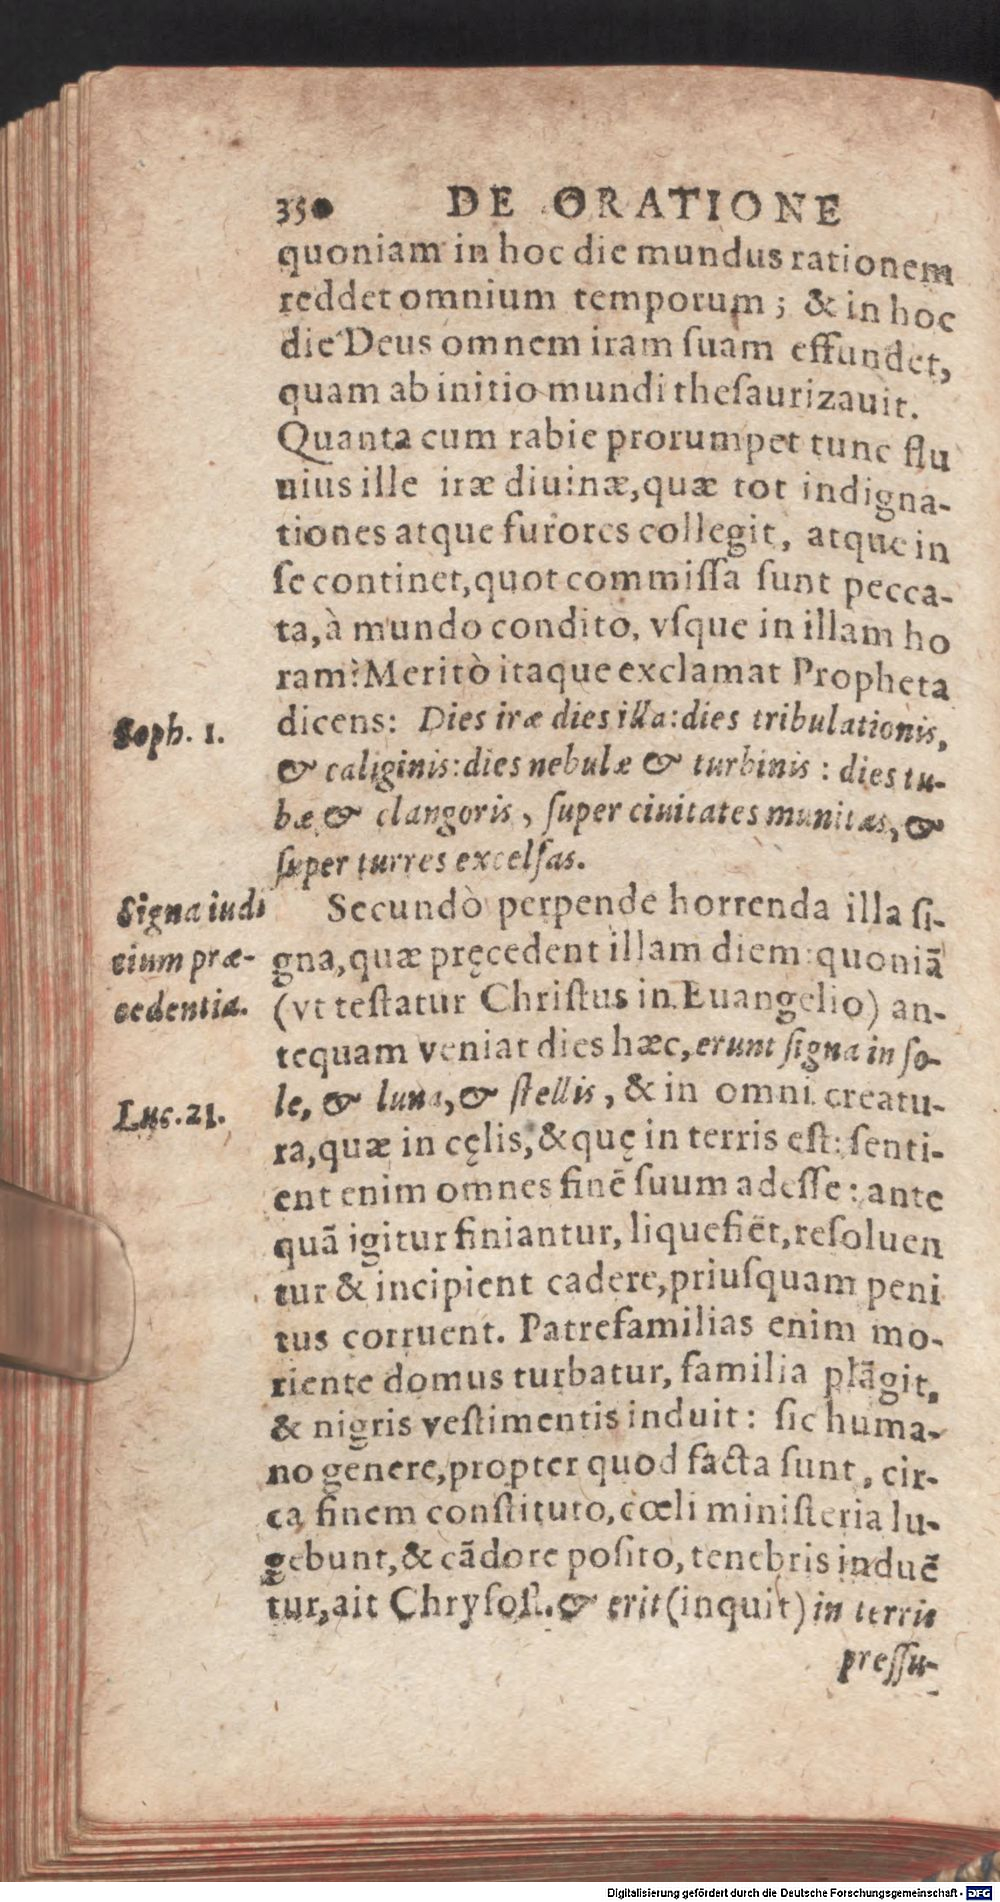 350 DE ORATIONE
quoniam in hoc die mundus rationem
reddet omnium temporum; & in hoc
die Deus omnem iram ſuam effundet,
quam ab initio mundi theſaurizauit.
Quanta cum rabie prorumpet tunc flu
uius ille iræ diuinæ, quæ tot indigna-
tiones atque furores collegit, atque in
ſe continet, quot commiſſa ſunt pecca-
ta, à mundo condito, vſque in illam ho
ram? Meritò itaque exclamat Propheta
Soph. 1.
dicens: Dies iræ dies illa: dies tribulationis,
& caliginis: dies nebulæ & turbinis: dies tu-
bæ & clangoris, ſuper ciuitates munitas, &
ſuper turres excelſas.
Signa iudi
cium præ-
cedentia.
Secundò perpende horrenda illa ſi-
gna, quæ pręcedent illam diem: quoniã
(vt teſtatur Chriſtus in Euangelio) an-
tequam veniat dies hæc, erunt ſigna in ſo-
Luc. 21.
le, & luna, & ſtellis, & in omni creatu-
ra, quæ in cęlis, & quę in terris eſt: ſenti-
ent enim omnes finẽ ſuum adeſſe: ante
quã igitur finiantur, liquefiẽt, reſoluen
tur & incipient cadere, priuſquam peni
tus corruent. Patrefamilias enim mo-
riente domus turbatur, familia plãgit,
& nigris veſtimentis induit: ſic huma-
no genere, propter quod facta ſunt, cir-
ca finem conſtituto, cœli miniſteria lu-
gebunt, & cãdore poſito, tenebris induẽ
tur, ait Chryſoſt. & erit (inquit) in terris
preſſu-
Digitalisierung gefördert durch die Deutsche Forschungsgemeinschaft - DFG